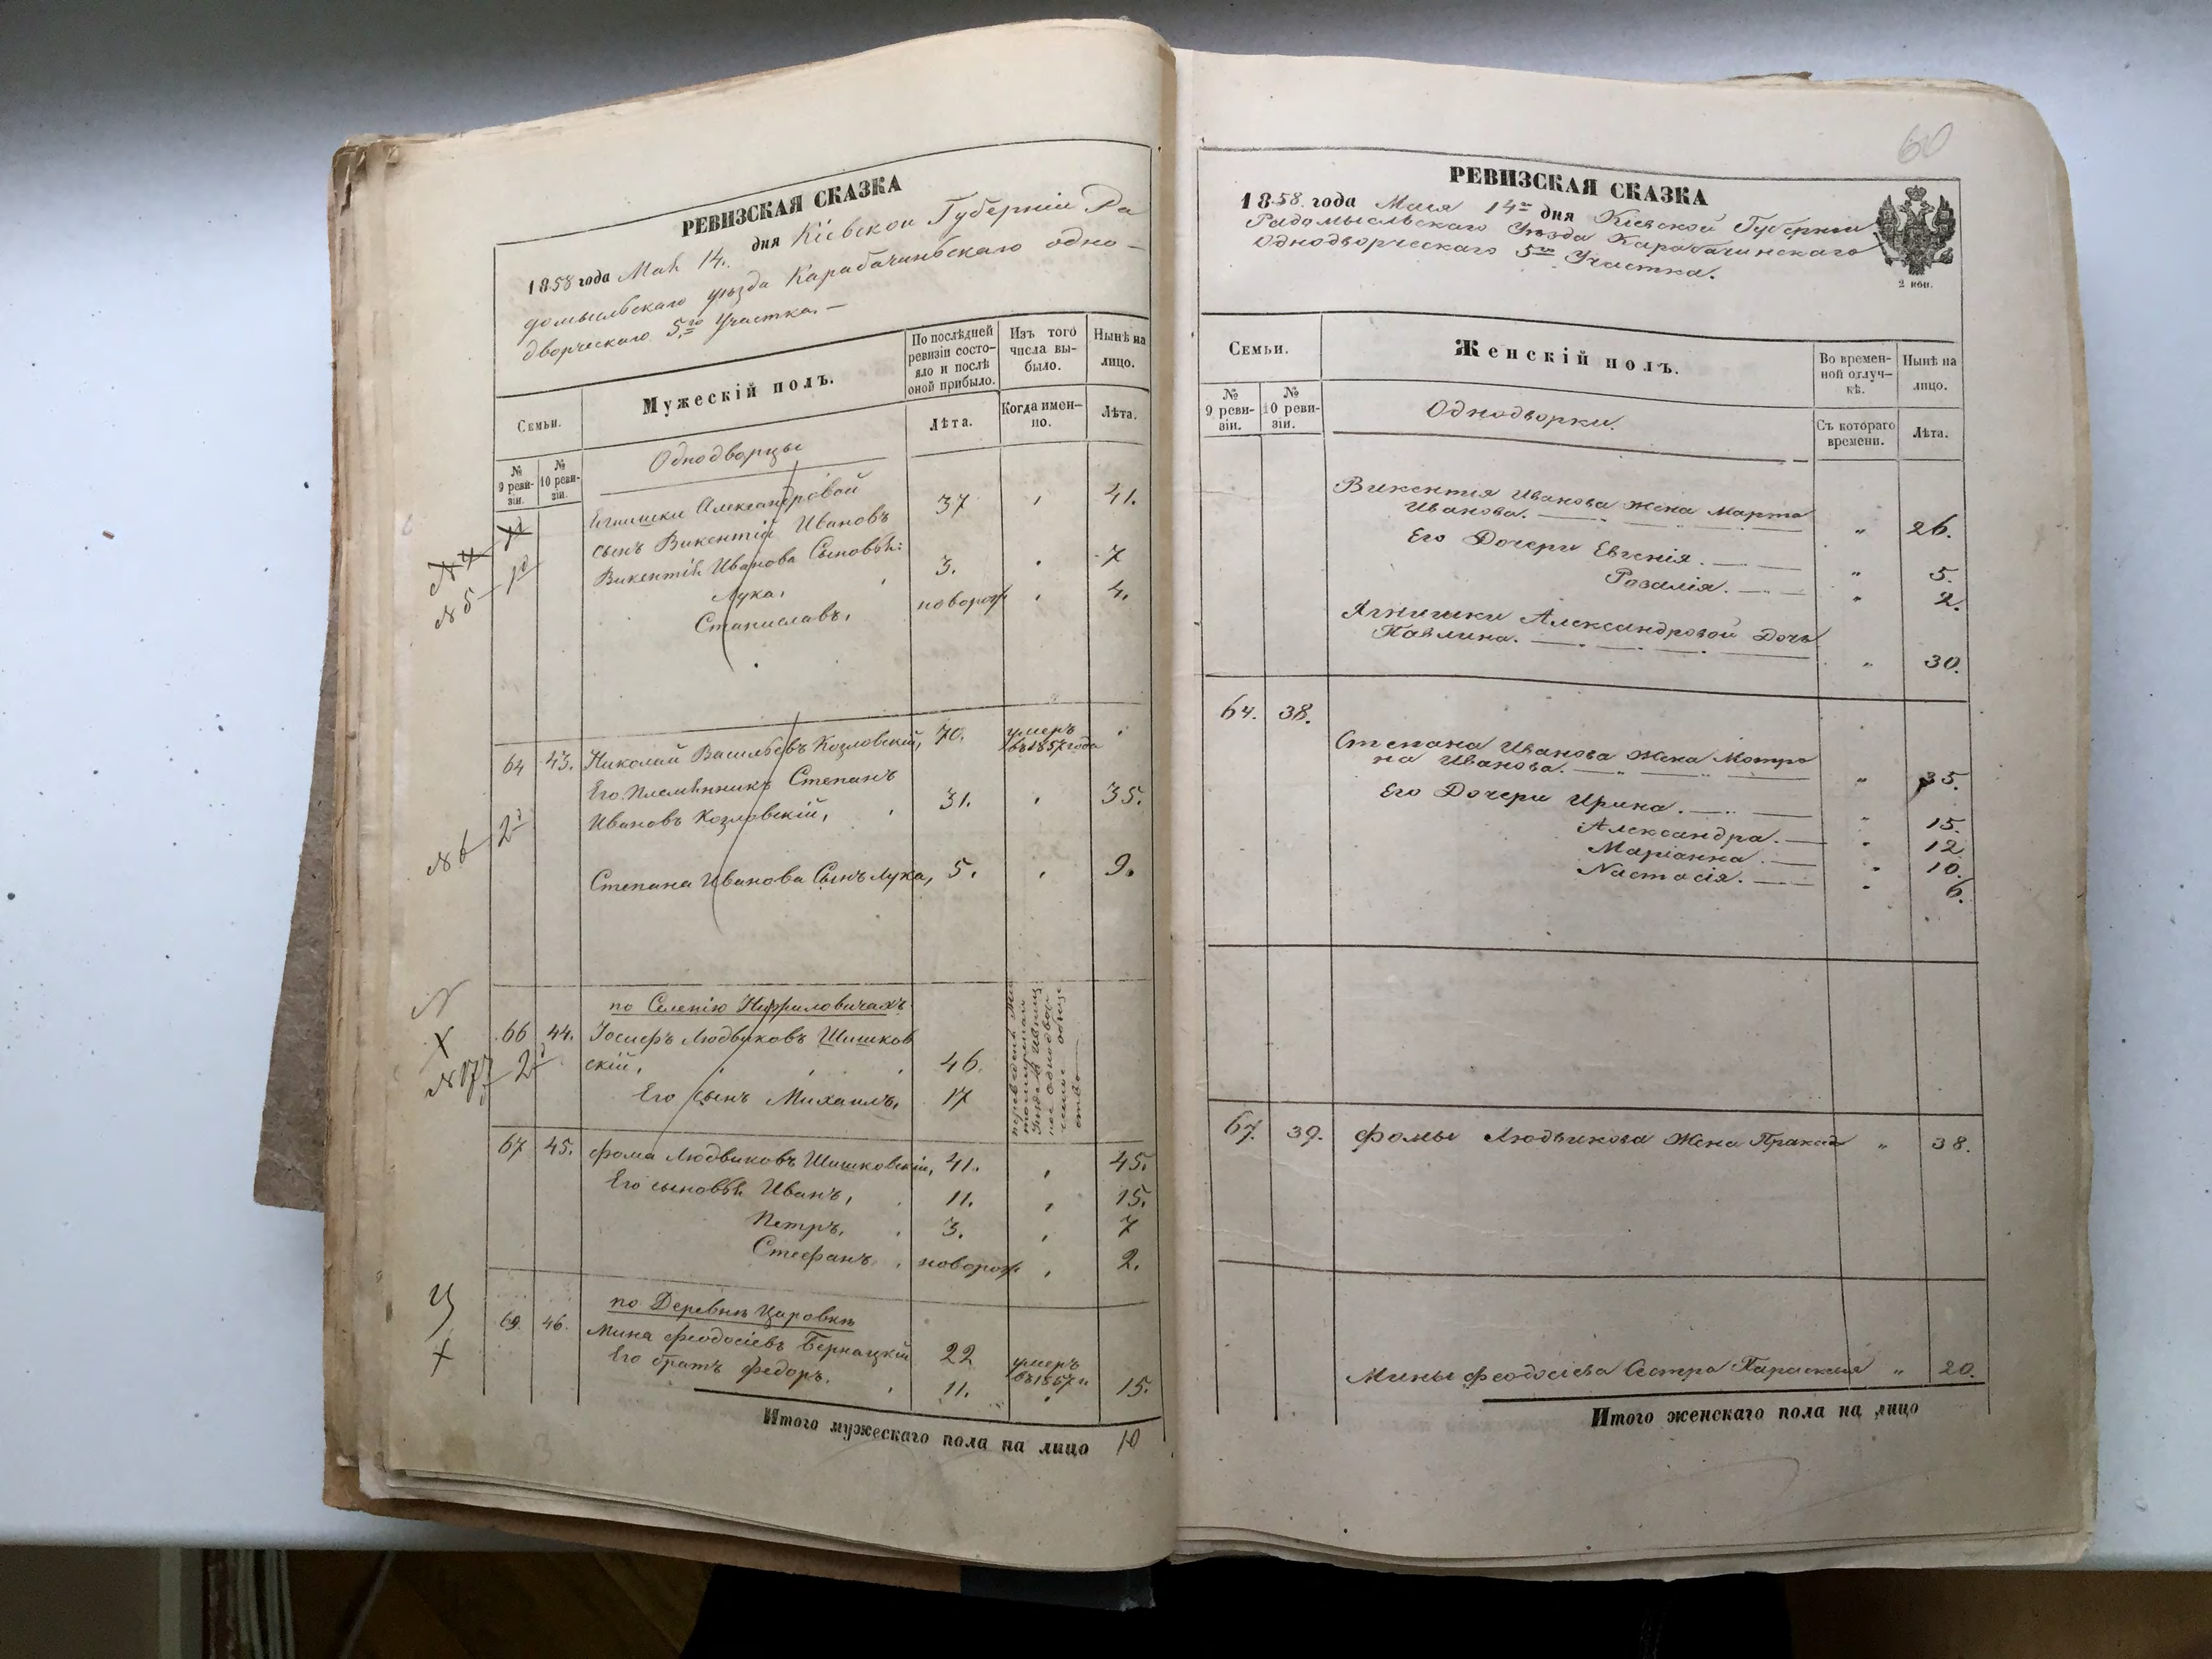 РЕВИЗСКАЯ СКАЗКА
1858 года Маѣ 14. дня Кіевской Губерніи Ра
домысльскаго уѣзда Карабачинбскаго одно-
дворческаго 5го Участка.
Семьи.
Мужескій полъ.
По послѣдней ревизіи состо-
яло и послѣ
оной прибыло.
Изъ того
числа вы-
было.
Нынѣ на
лицо.
№
9 реви-
зіи.
№
10 реви-
зіи.
Однодворцы
Лѣта.
Когда имен-
но.
Лѣта.
Ягнишки Александровой
сынъ Викентій Ивановъ 37 41.
Викентія Иванова Сыновья:
Лука, 3. 7
Станиславъ, новорож 4.
№ 5
64 43. Николай Васильевъ Козловскій, 70. умеръ
въ 1857 года
Его Племянникъ Степанъ
Ивановъ Козловскій, 31. 35.
№ 6 2
Степана Иванова Сынъ Лука, 5. 9.
по Селенію Нефиловичахъ
66 44. Іосифъ Людвиковъ Шишков
скій, 46.
№ 177 2
Его сынъ Михаилъ, 17
67 45. Фома Людвиковъ Шишковскій, 41. 45.
Его сыновья Иванъ, 11. 15.
Петръ, 3. 7
Стефанъ, новорож 2.
по Деревнѣ Царовкѣ
69 46. Мина Феодосіевъ Бернацкій 22 умеръ
въ 1857 г.
Его братъ Федоръ. 11. 15.
Итого мужескаго пола на лицо 10
60
РЕВИЗСКАЯ СКАЗКА
1858. года Мая 14го дня Кіевской Губерніи
Радомысльскаго Уѣзда Карабачинскаго
Однодворческаго 5го Участка.
2 коп.
Семьи.
Женскій полъ.
Во времен-
ной отлуч-
кѣ.
Нынѣ на
лицо.
№
9 реви-
зіи.
№
10 реви-
зіи.
Однодворки.
Съ котораго
времени.
Лѣта.
Викентія Иванова жена Марта
Иванова. " 26.
Его Дочери Евгенія. " 5.
Розалія. " 2.
Ягнишки Александровой Дочь
Павлина. " 30.
64. 38.
Степана Иванова Жена Мотро
на Иванова. " 35.
Его Дочери Ирина. " 15.
Александра. " 12
Маріанна. " 10.
Настасія. " 6.
67. 39. Фомы Людвикова Жена " 38.
Мины Феодосіева Сестра Параскева " 20.
Итого женскаго пола на лицо